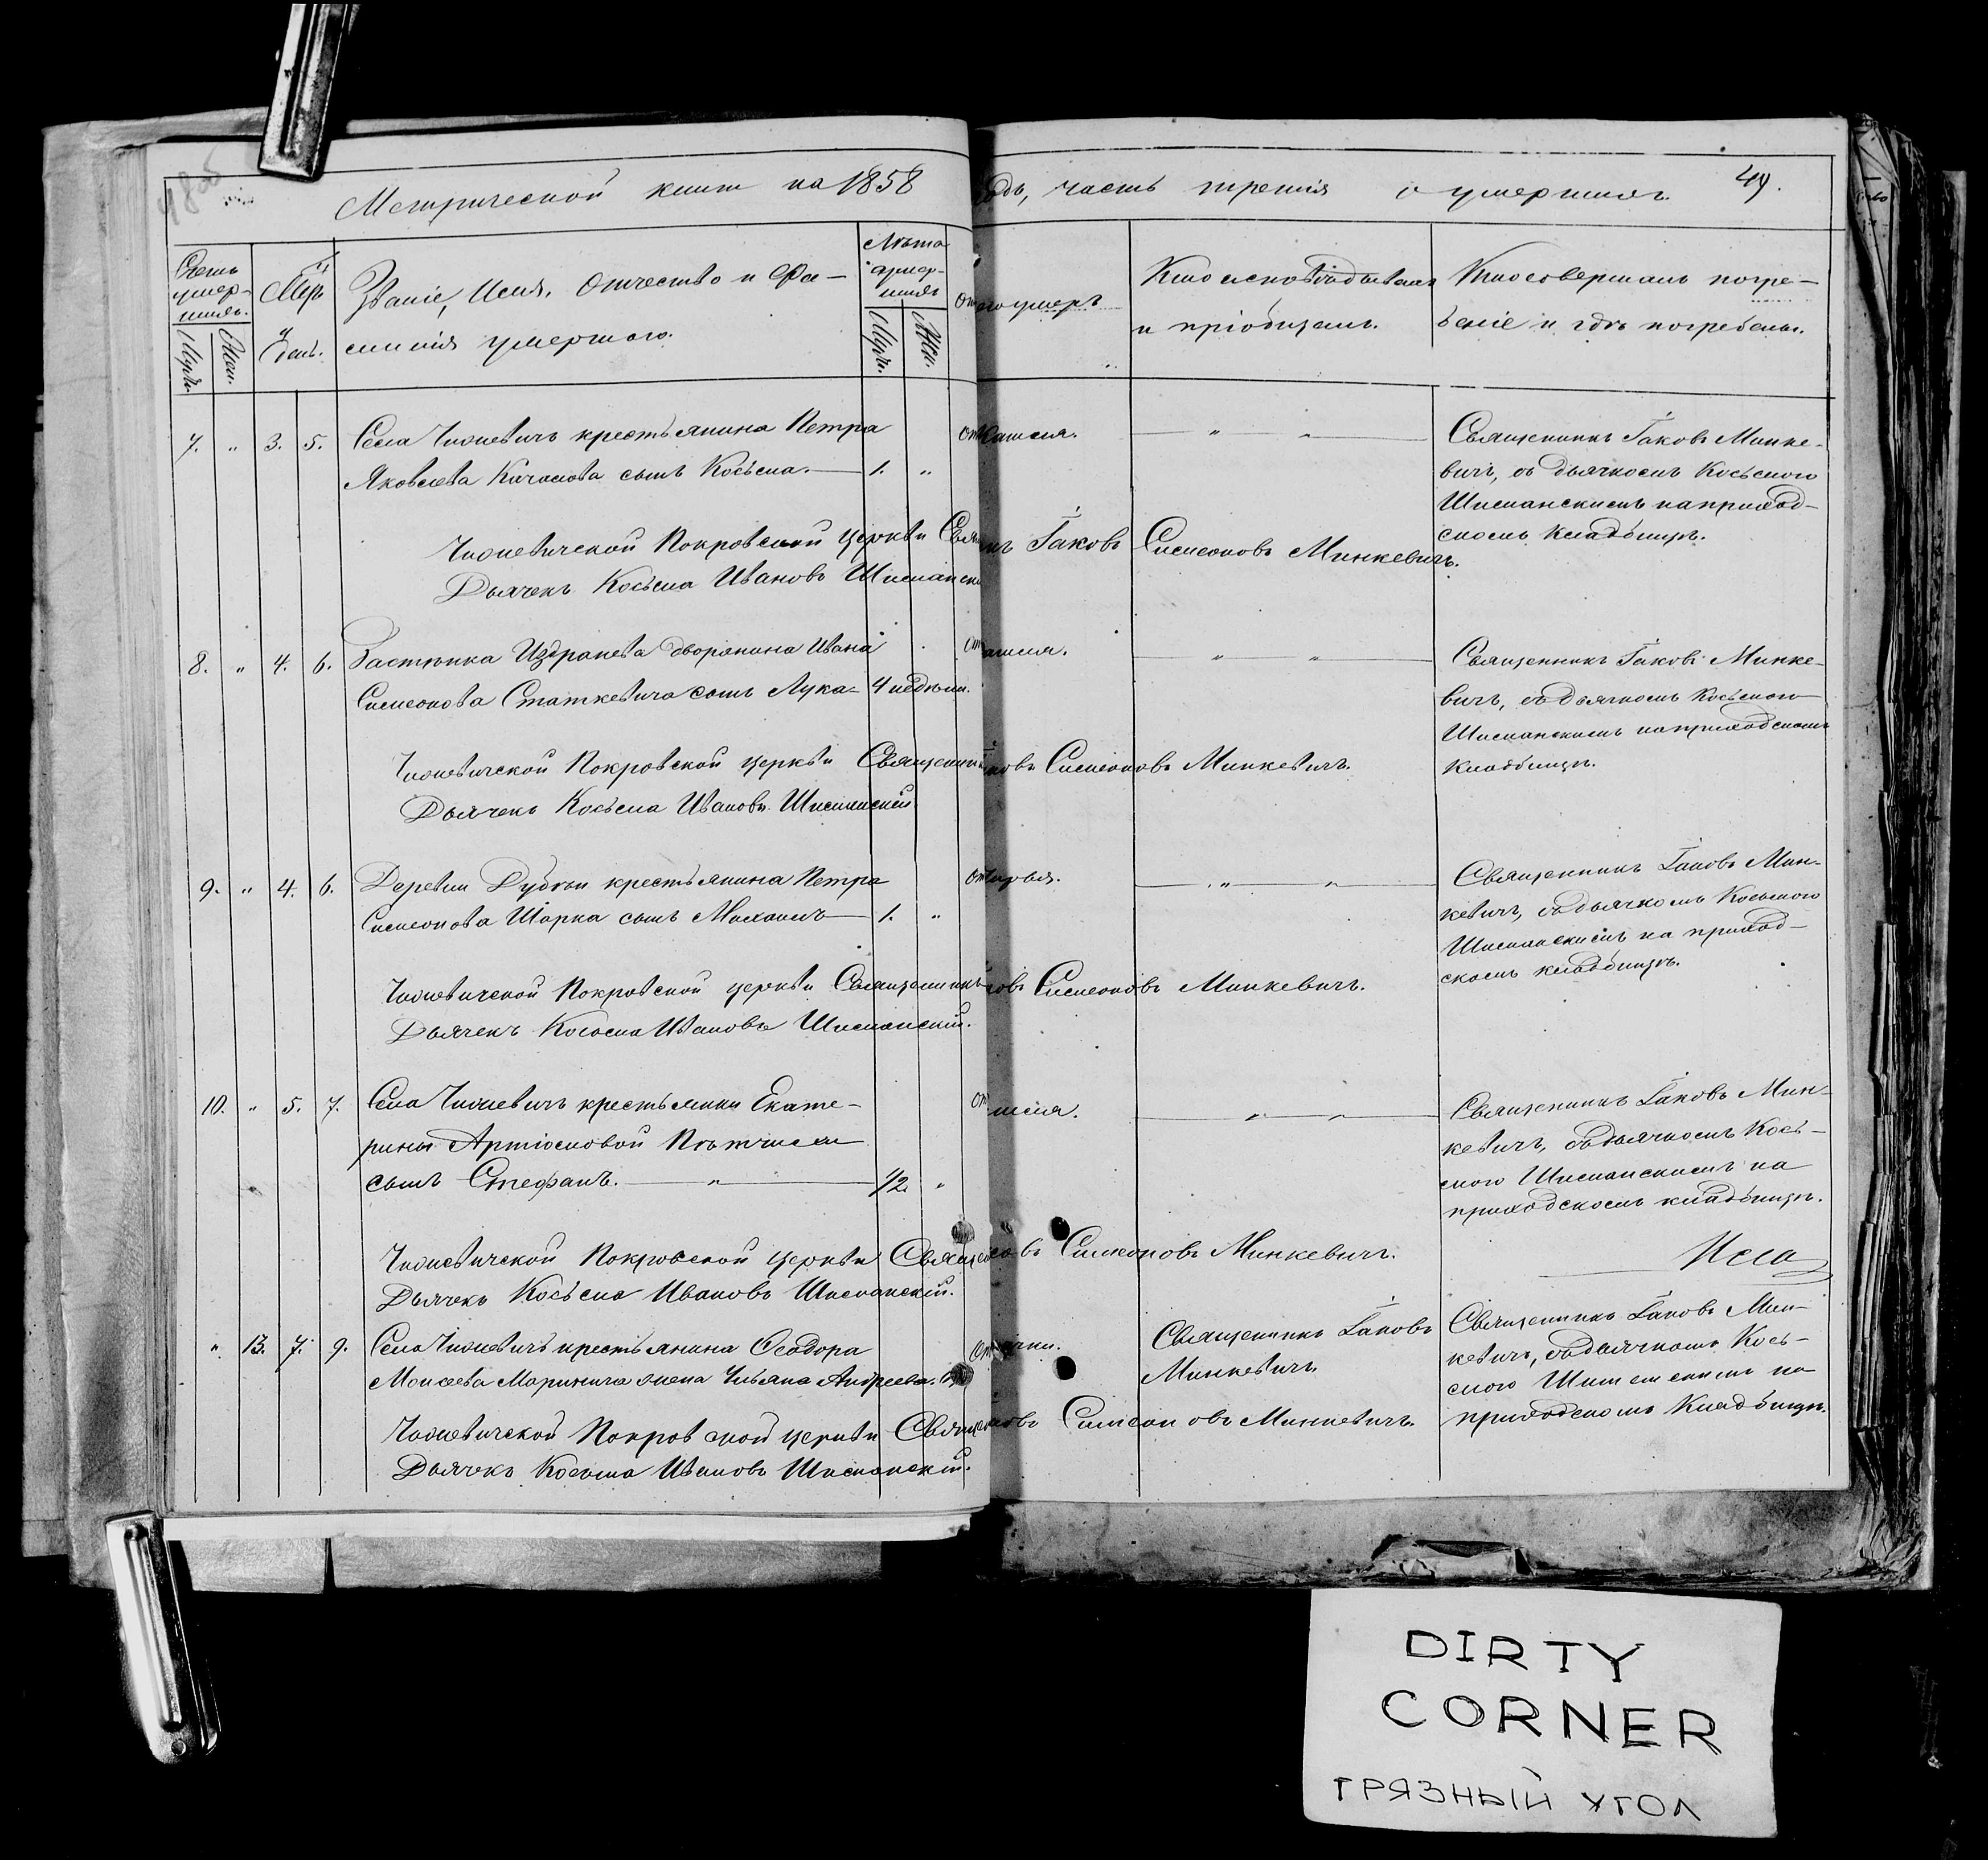 Метрической книги на 1858
годъ, часть третія о умершихъ.
49.
Счетъ умер-
шихъ.
Муж.
Жен.
Мѣс.
и
день.
Званіе, Имя, Отчество и Фа-
милія умершаго.
Лѣта
умер-
шихъ
Муж.
Жен.
Отъ чего умеръ
Кто исповѣдывалъ
и пріобщалъ.
Кто совершалъ погре-
беніе и гдѣ погребены.
7. " 3. 5.
Села крестьянина Петра
Яковлева сынъ Косьма. 1. "
Отъ кашля.
Священникъ Іаковъ Минке-
вичъ, съ дьячкомъ Косьмою
Шиманскимъ на приход-
скомъ кладбищѣ.
Покровской церкви Іаковъ Симеоновъ Минкевичъ.
Дьячекъ Косьма Ивановъ Шиманскій
8. " 4. 6.
Застѣнка Издранева дворянина Ивана
Симеонова Статкевича сынъ Лука 4 недѣли.
Отъ кашля.
Священникъ Іаковъ Минке-
вичъ, съ дьячкомъ Косьмою
Шиманскимъ на приходскомъ
кладбищѣ.
Покровской церкви Священникъ Іаковъ Симеоновъ Минкевичъ.
Дьячекъ Косьма Ивановъ Шиманскій.
9. " 4. 6.
Деревни крестьянина Петра
Симеонова сынъ Михаилъ 1. "
Священникъ Іаковъ Мин-
кевичъ, съ дьячкомъ Косьмою
Шиманскимъ на приход-
скомъ кладбищѣ.
Покровской церкви Священникъ Іаковъ Симеоновъ Минкевичъ.
Дьячекъ Косьма Ивановъ Шиманскій.
10. " 5. 7.
Села крестьянки Екате-
рины
сынъ Стефанъ. " 1/2. "
Отъ кашля.
Священникъ Іаковъ Мин-
кевичъ, съ дьячкомъ Кось-
мою Шиманскимъ на
приходскомъ кладбищѣ.
Покровской церкви Іаковъ Симеоновъ Минкевичъ.
Дьячекъ Косьма Ивановъ Шиманскій.
" 13. 7. 9.
Села крестьянина Ѳеодора
Моисеева жена Ульяна Андреева.
Священникъ Іаковъ
Минкевичъ
Священникъ Іаковъ Мин-
кевичъ, съ дьячкомъ Кось-
мою Шиманскимъ на
приходскомъ кладбищѣ.
Покровской церкви Іаковъ Симеоновъ Минкевичъ.
Дьячекъ Косьма Ивановъ Шиманскій.
DIRTY
CORNER
ГРЯЗНЫЙ УГОЛ